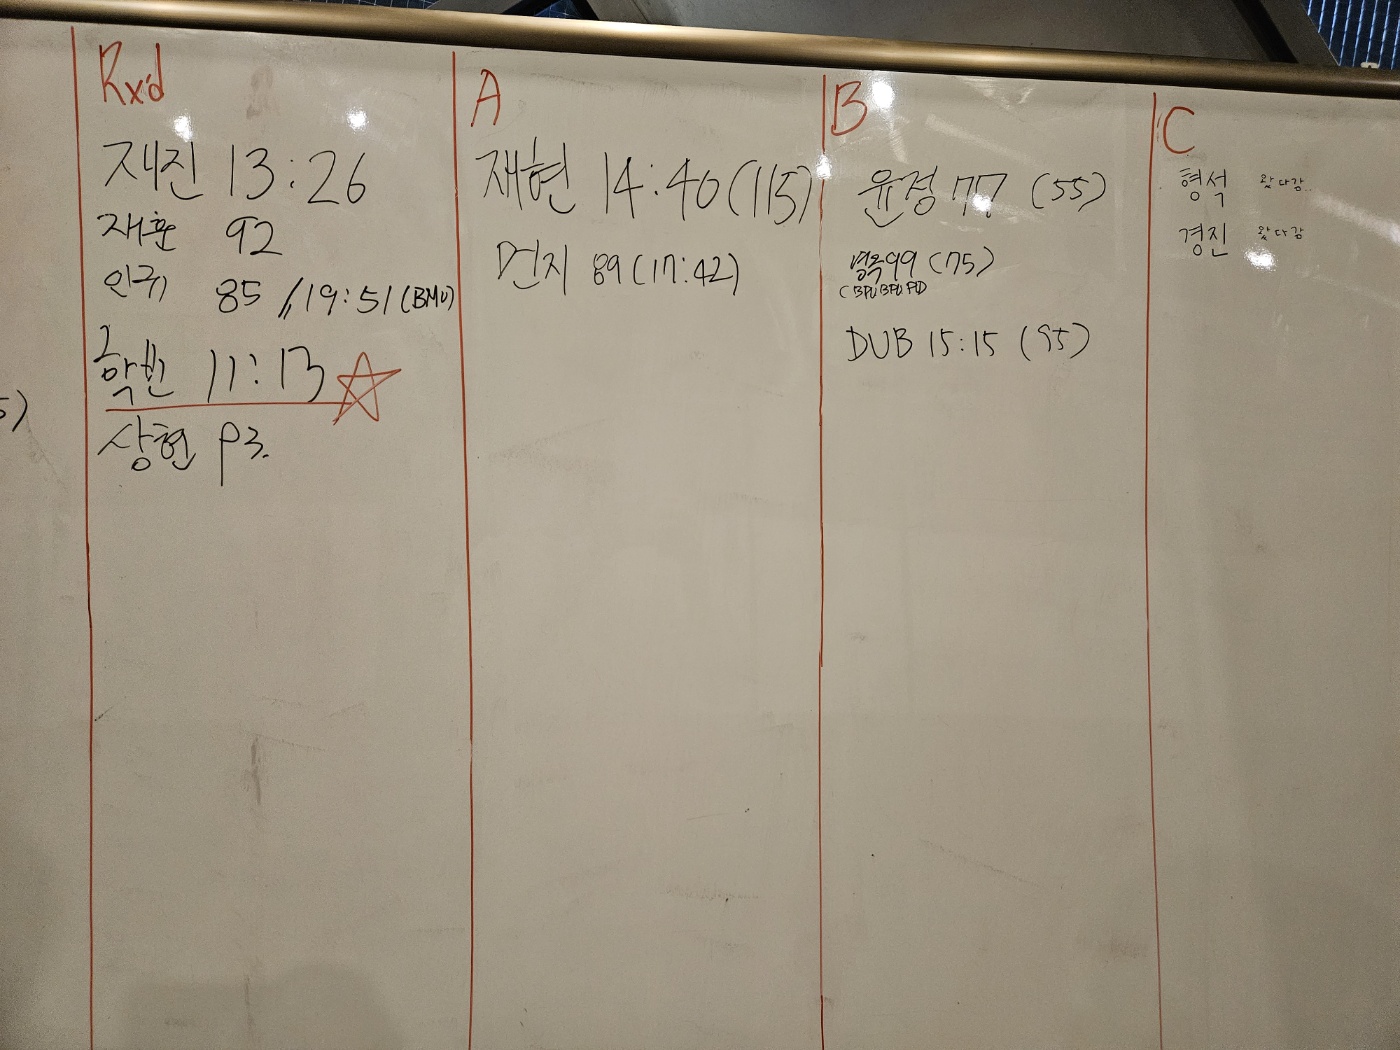 5)
Rx'd
재진 13:26
재훈 92
인규 85 // 19:51 (BMU)
학빈 11:13
상현 93.
A
재현 14:40 (115)
먼지 89 (17:42)
B
윤정 77 (55)
99 (75)
DUB 15:15 (95)
C
형석 왔다감..
경진 왔다감